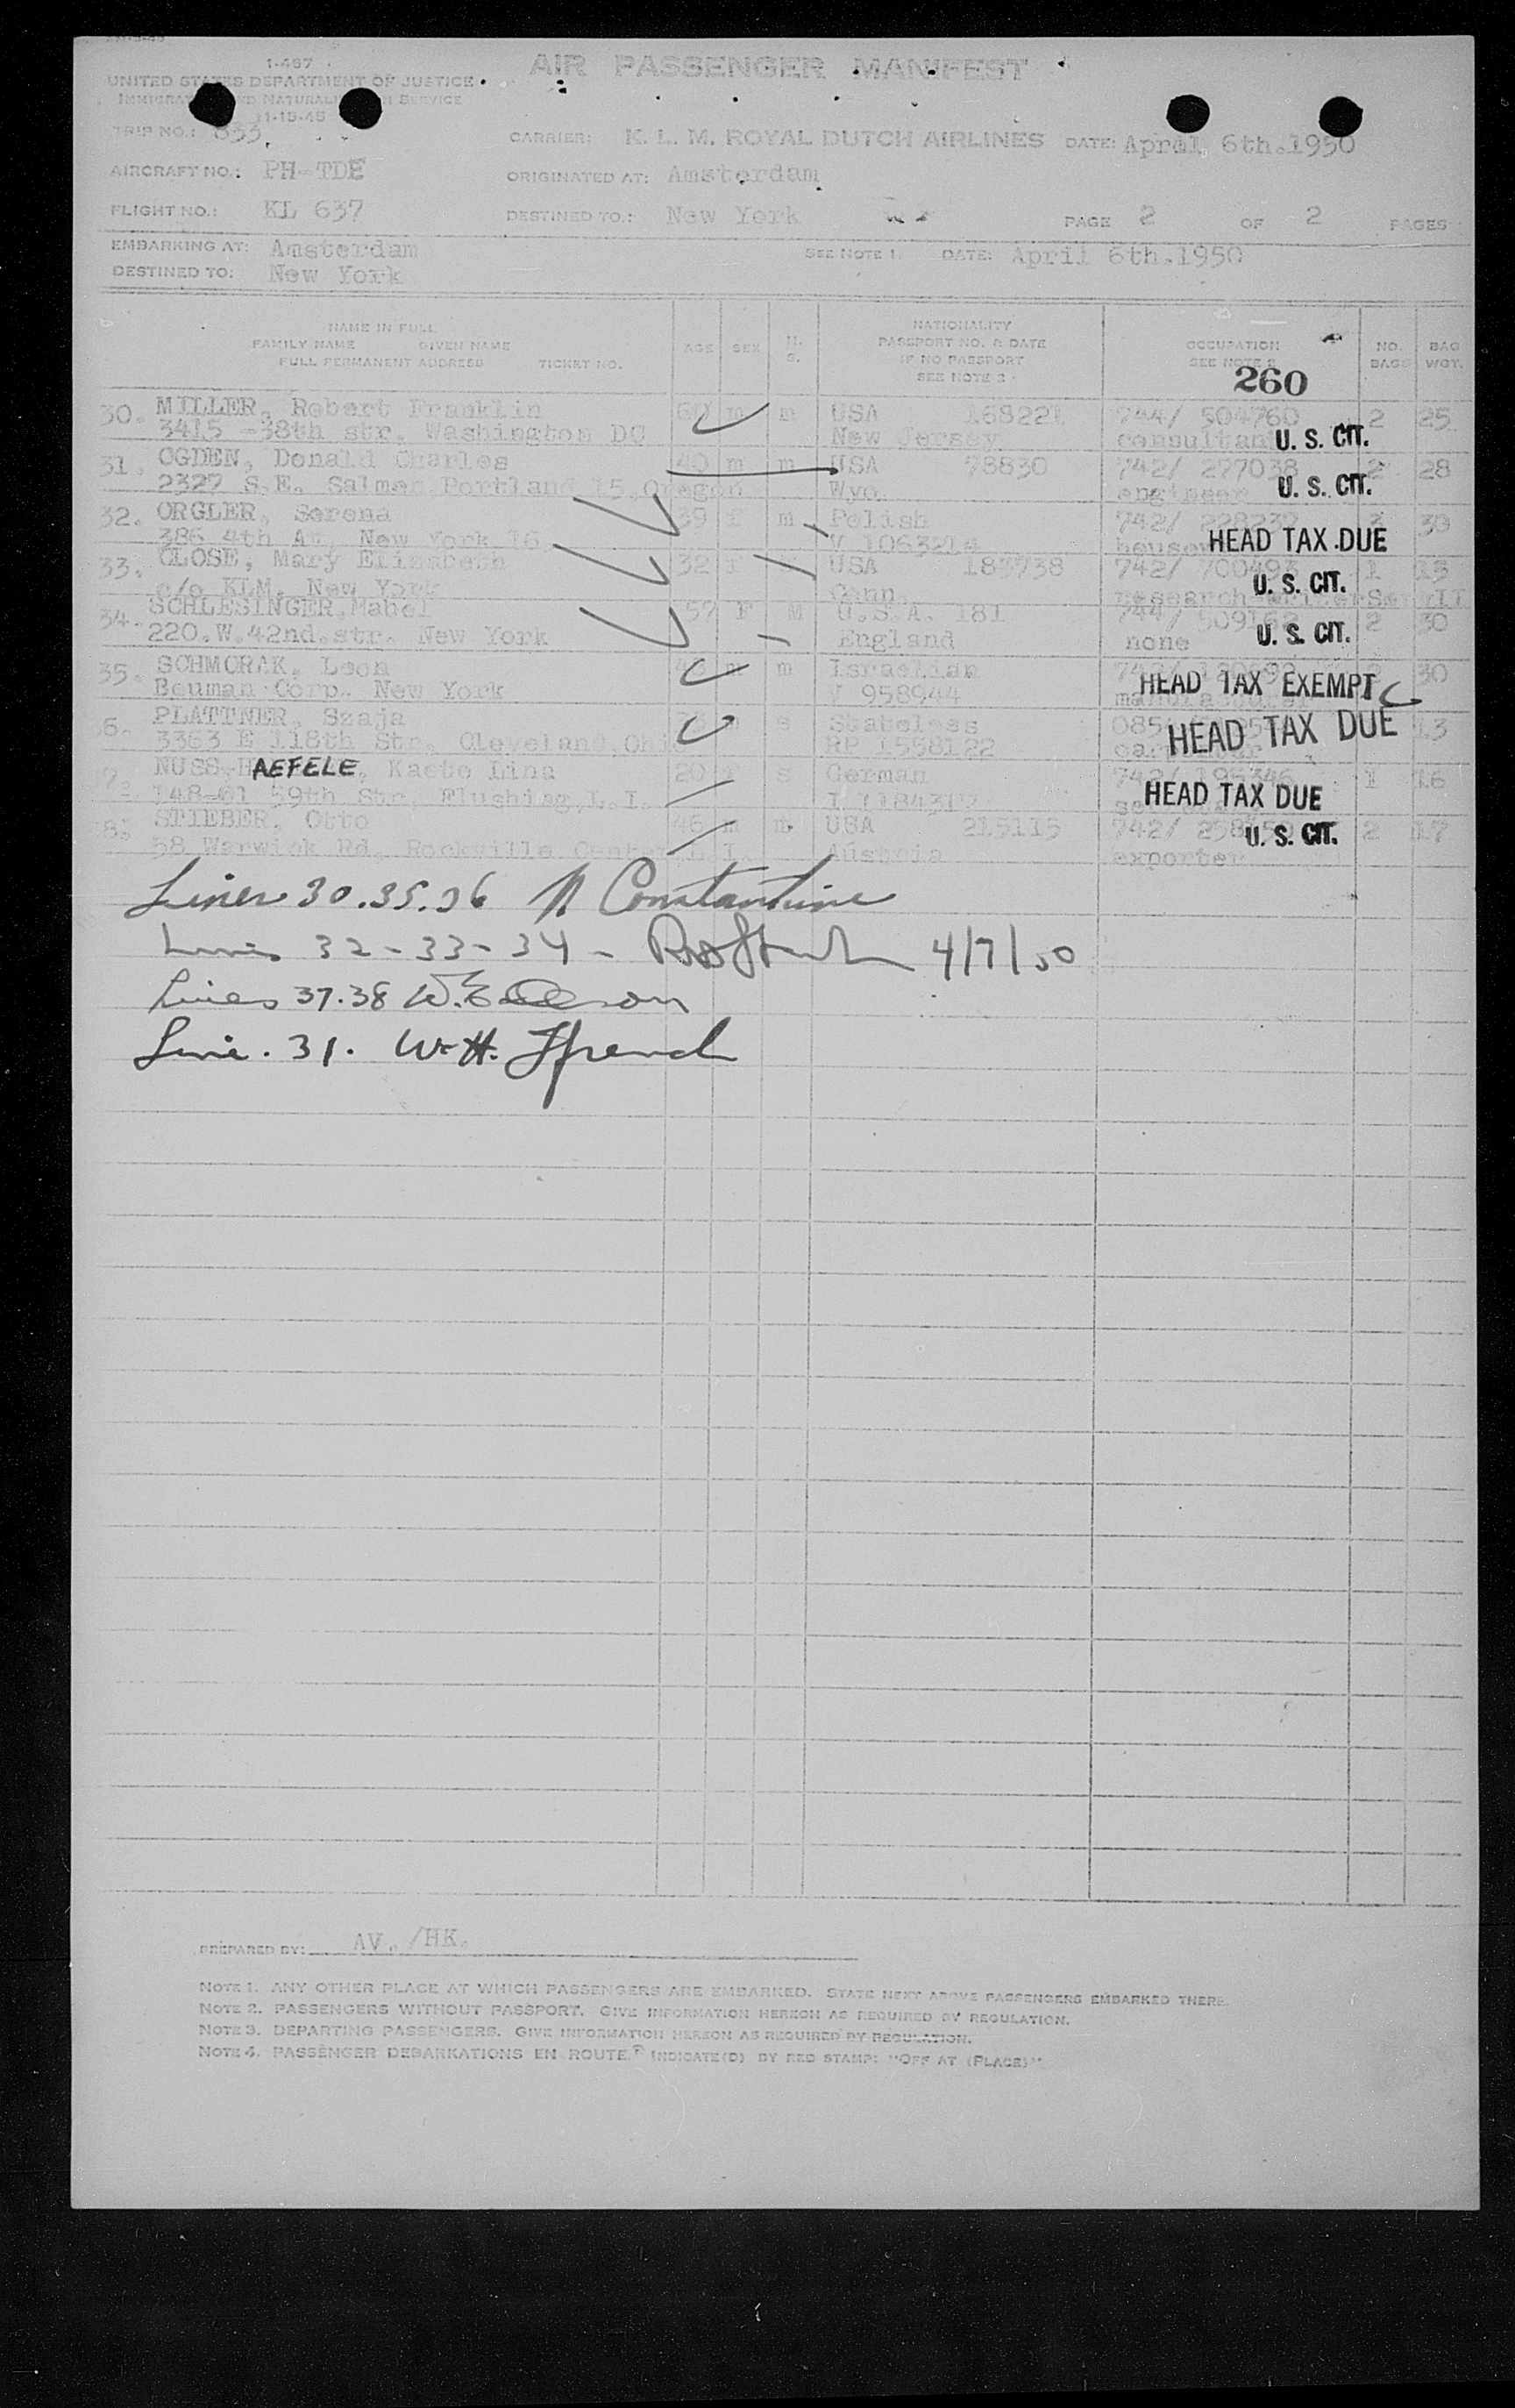 1-467
UNITED STATES DEPARTMENT OF JUSTICE
IMMIGRATION AND NATURALIZATION SERVICE
11-15-45
AIR PASSENGER MANIFEST
TRIP NO.: 833.
CARRIER: K. L. M. ROYAL DUTCH AIRLINES DATE: April 6th.1950
AIRCRAFT NO.: PH-TDE ORIGINATED AT: Amsterdam
FLIGHT NO.: KL 637 DESTINED TO.: New York PAGE 2 OF 2 PAGES
EMBARKING AT: Amsterdam SEE NOTE 1. DATE: April 6th.1950
DESTINED TO: New York
NAME IN FULL
FAMILY NAME GIVEN NAME
FULL PERMANENT ADDRESS TICKET NO.
AGE SEX M. S.
NATIONALITY
PASSPORT NO. & DATE
IF NO PASSPORT
SEE NOTE 2
OCCUPATION
SEE NOTE 3
NO. BAGS BAG WGT.
260
30. MILLER, Robert Franklin 60 m m USA 168221 744/ 504760 2 25
3415 -38th str. Washington DC New Jersey consultant U. S. CIT.
31. OGDEN, Donald Charles 40 m m USA 78830 742/ 277038 2 28
2327 S.E. Salmon Portland 15.Oregon Wyo. engineer U. S. CIT.
32. ORGLER, Serena 39 f m Polish 742/ 30
386 4th Av. New York 16 V HEAD TAX DUE
33. CLOSE, Mary Elizabeth 32 f USA 183738 742/ 700493 1 13
c/o KLM. New York Conn. research U. S. CIT.
34. SCHLESINGER, Mabel 57 F M U.S.A. 181 744/ 2 30
220.W.42nd.str. New York England none U. S. CIT.
35. SCHMORAK, Leon m Israelian 30
Beuman Corp. New York V 958944 HEAD TAX EXEMPT
36. PLATTNER, Szaja s Stateless 13
3363 E 118th Str. Cleveland, Ohio RP 1558122 HEAD TAX DUE
NUSS-HAEFELE, Kaete Lina 20 s German 742/ 195346 1 16
148-01 59th Str. Flushing,L.I. HEAD TAX DUE
STIEBER, Otto 46 m m USA 215115 742/ 2 17
58 Warwick Rd. Rockville Center L.I. Austria exporter U. S. CIT.
Lines 30.35.36 N Constantine
Lines 32-33-34 - 4/7/50
Lines 37.38 W.
Line. 31. W.H. Ffrench
PREPARED BY: AV./HK.
NOTE 1. ANY OTHER PLACE AT WHICH PASSENGERS ARE EMBARKED. STATE NEXT ABOVE PASSENGERS EMBARKED THERE.
NOTE 2. PASSENGERS WITHOUT PASSPORT. GIVE INFORMATION HEREON AS REQUIRED BY REGULATION.
NOTE 3. DEPARTING PASSENGERS. GIVE INFORMATION HEREON AS REQUIRED BY REGULATION.
NOTE 4. PASSENGER DEBARKATIONS EN ROUTE. INDICATE(D) BY RED STAMP: "OFF AT (PLACE)"